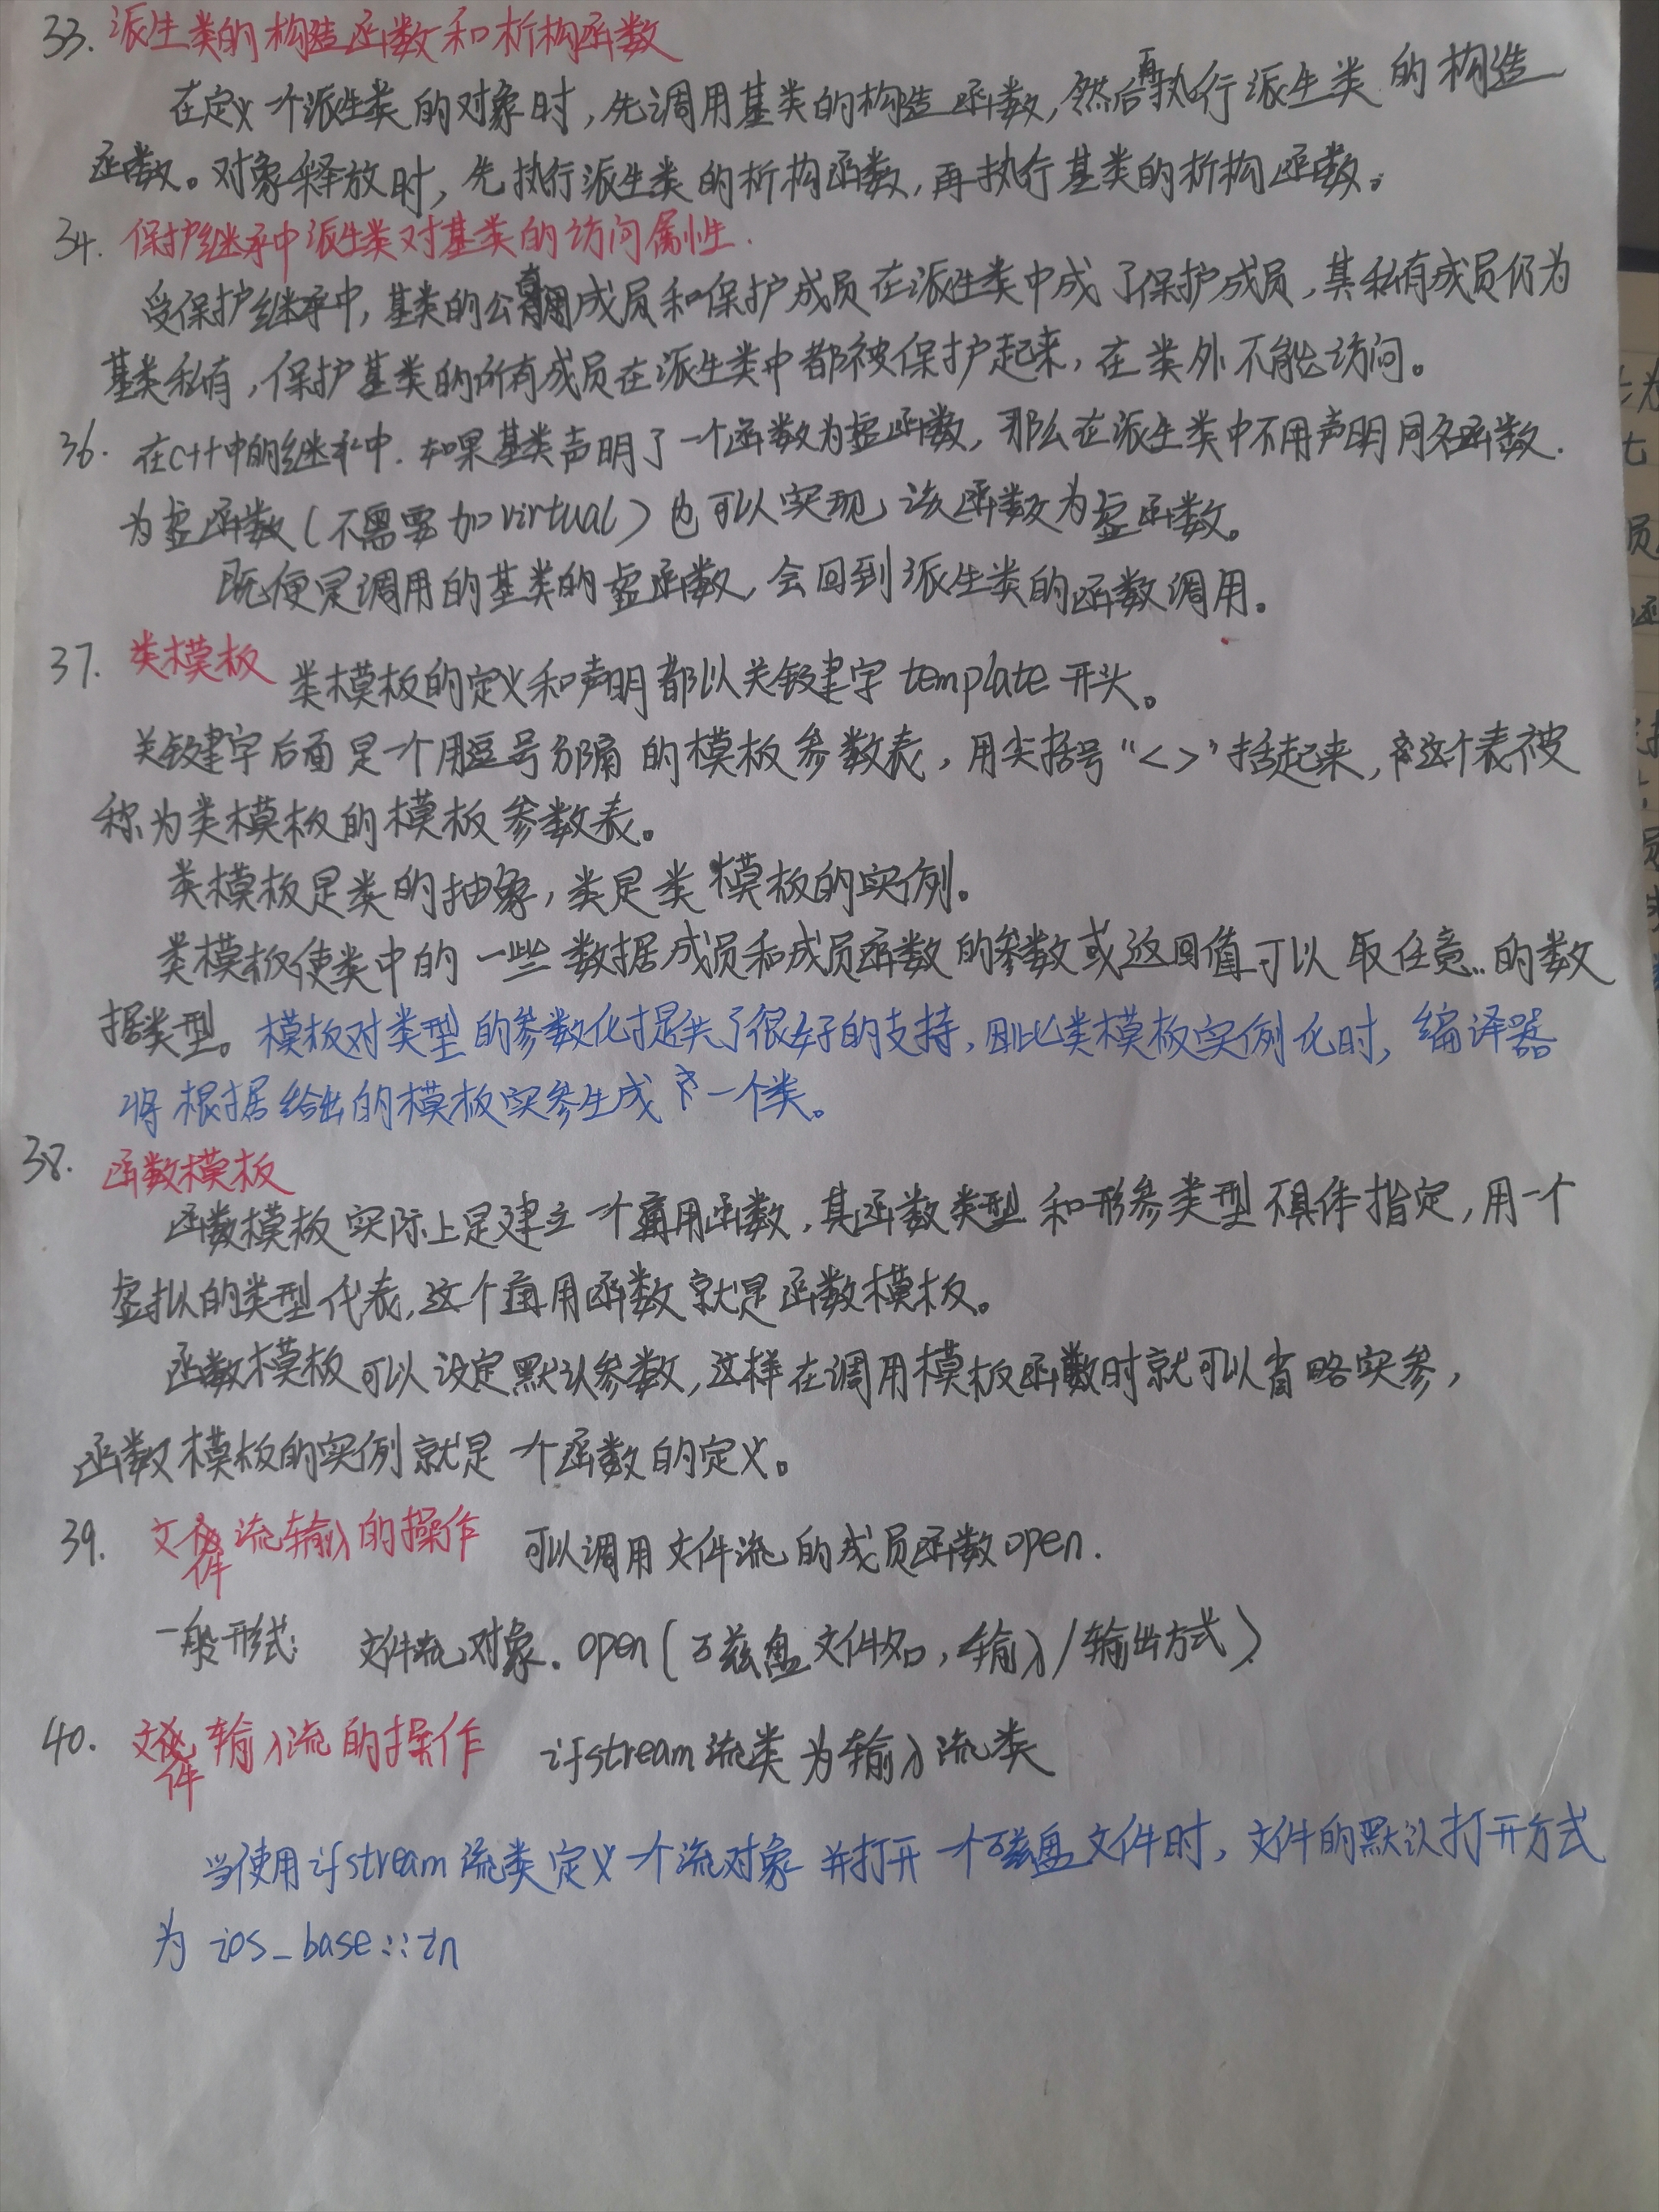 33. 派生类的构造函数和析构函数
在定义一个派生类的对象时,先调用基类的构造函数,然后再执行派生类的构造
函数。对象释放时,先执行派生类的析构函数,再执行基类的析构函数。
34. 保护继承中派生类对基类的访问属性.
受保护继承中,基类的公有成员和保护成员在派生类中成了保护成员,其私有成员仍为
基类私有,保护基类的所有成员在派生类中都被保护起来,在类外不能访问。
36. 在C++中的继承中.如果基类声明了一个函数为虚函数,那么在派生类中不用声明同名函数.
为虚函数(不需要加virtual)也可以实现该函数为虚函数。
既便是调用的基类的虚函数,会回到派生类的函数调用。
37. 类模板 类模板的定义和声明都以关键字template开头。
关键字后面是一个用逗号分隔的模板参数表,用尖括号“< >”括起来,这个表被
称为类模板的模板参数表。
类模板是类的抽象,类是类模板的实例。
类模板使类中的一些数据成员和成员函数的参数或返回值可以取任意..的数
据类型。模板对类型的参数化提供了很好的支持,因此类模板实例化时,编译器
将根据给出的模板实参生成一个类。
38. 函数模板
函数模板实际上是建立一个通用函数,其函数类型和形参类型不具体指定,用一个
虚拟的类型代表,这个通用函数就是函数模板。
函数模板可以设定默认参数,这样在调用模板函数时就可以省略实参,
函数模板的实例就是一个函数的定义。
39. 文件流输入的操作 可以调用文件流的成员函数open.
一般形式: 文件流对象.open(磁盘文件名,输入/输出方式)
40. 文件输入流的操作 ifstream流类为输入流类
当使用ifstream流类定义一个流对象并打开一个磁盘文件时,文件的默认打开方式
为 ios_base::in